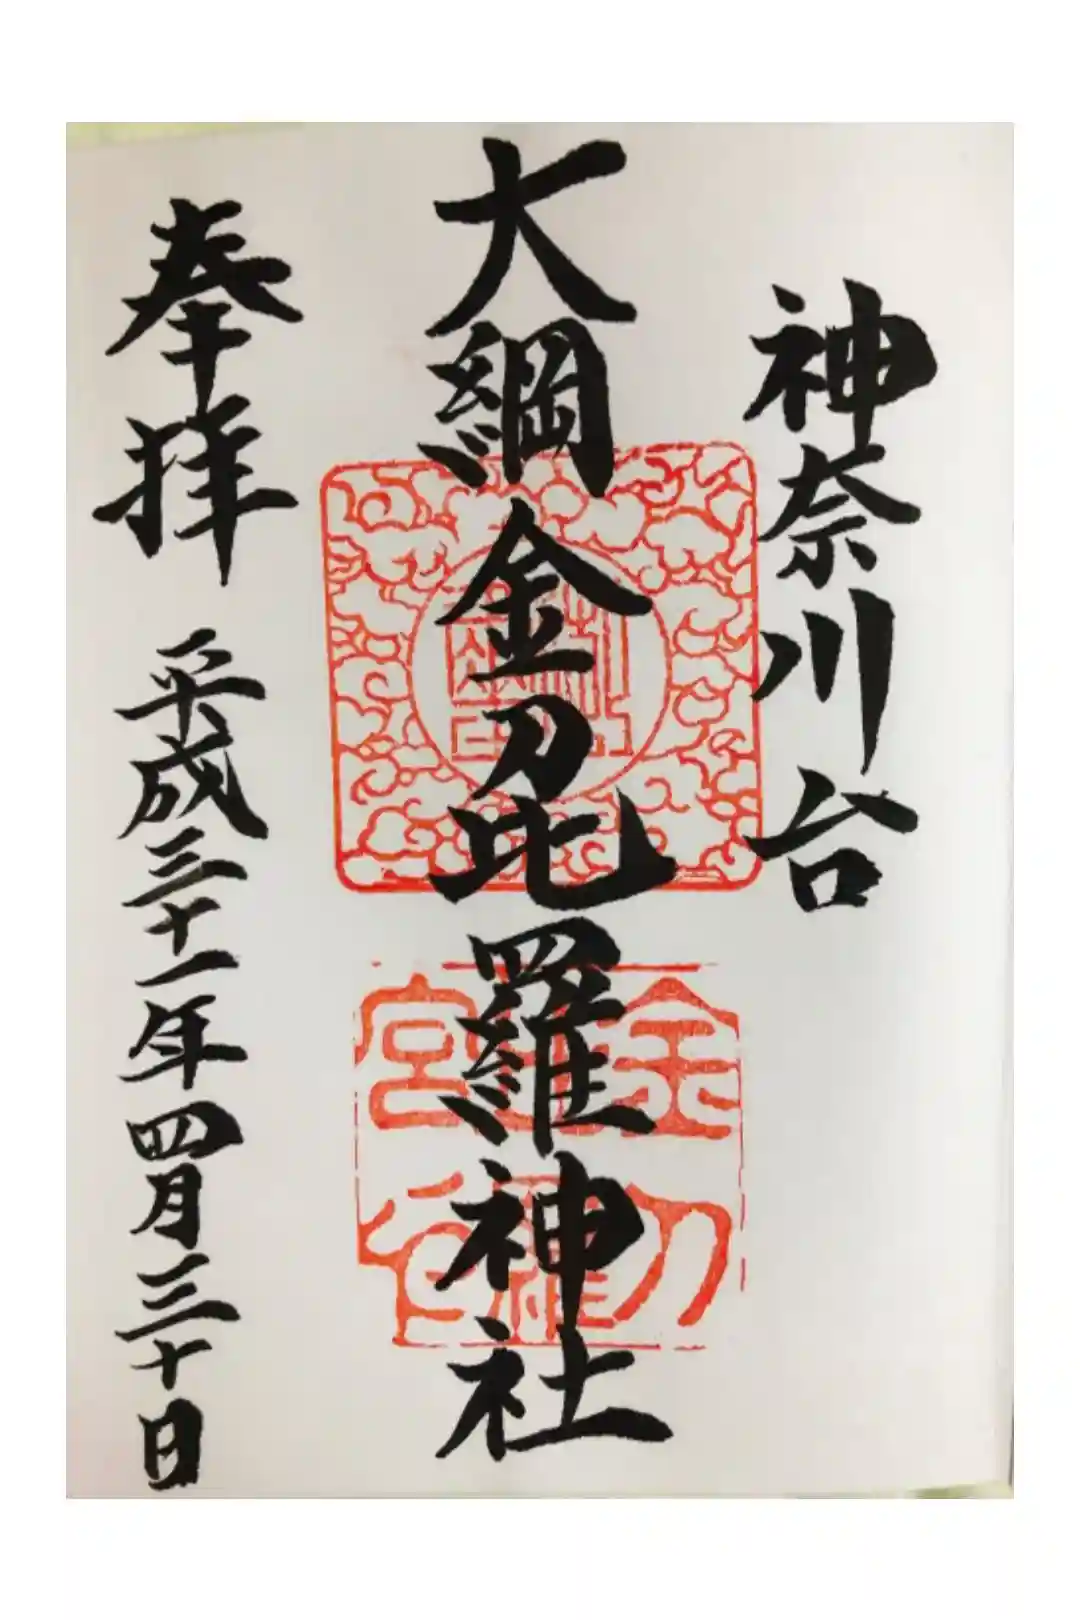 神奈川台
大綱金刀毘羅神社
奉拝
平成三十一年四月三十日